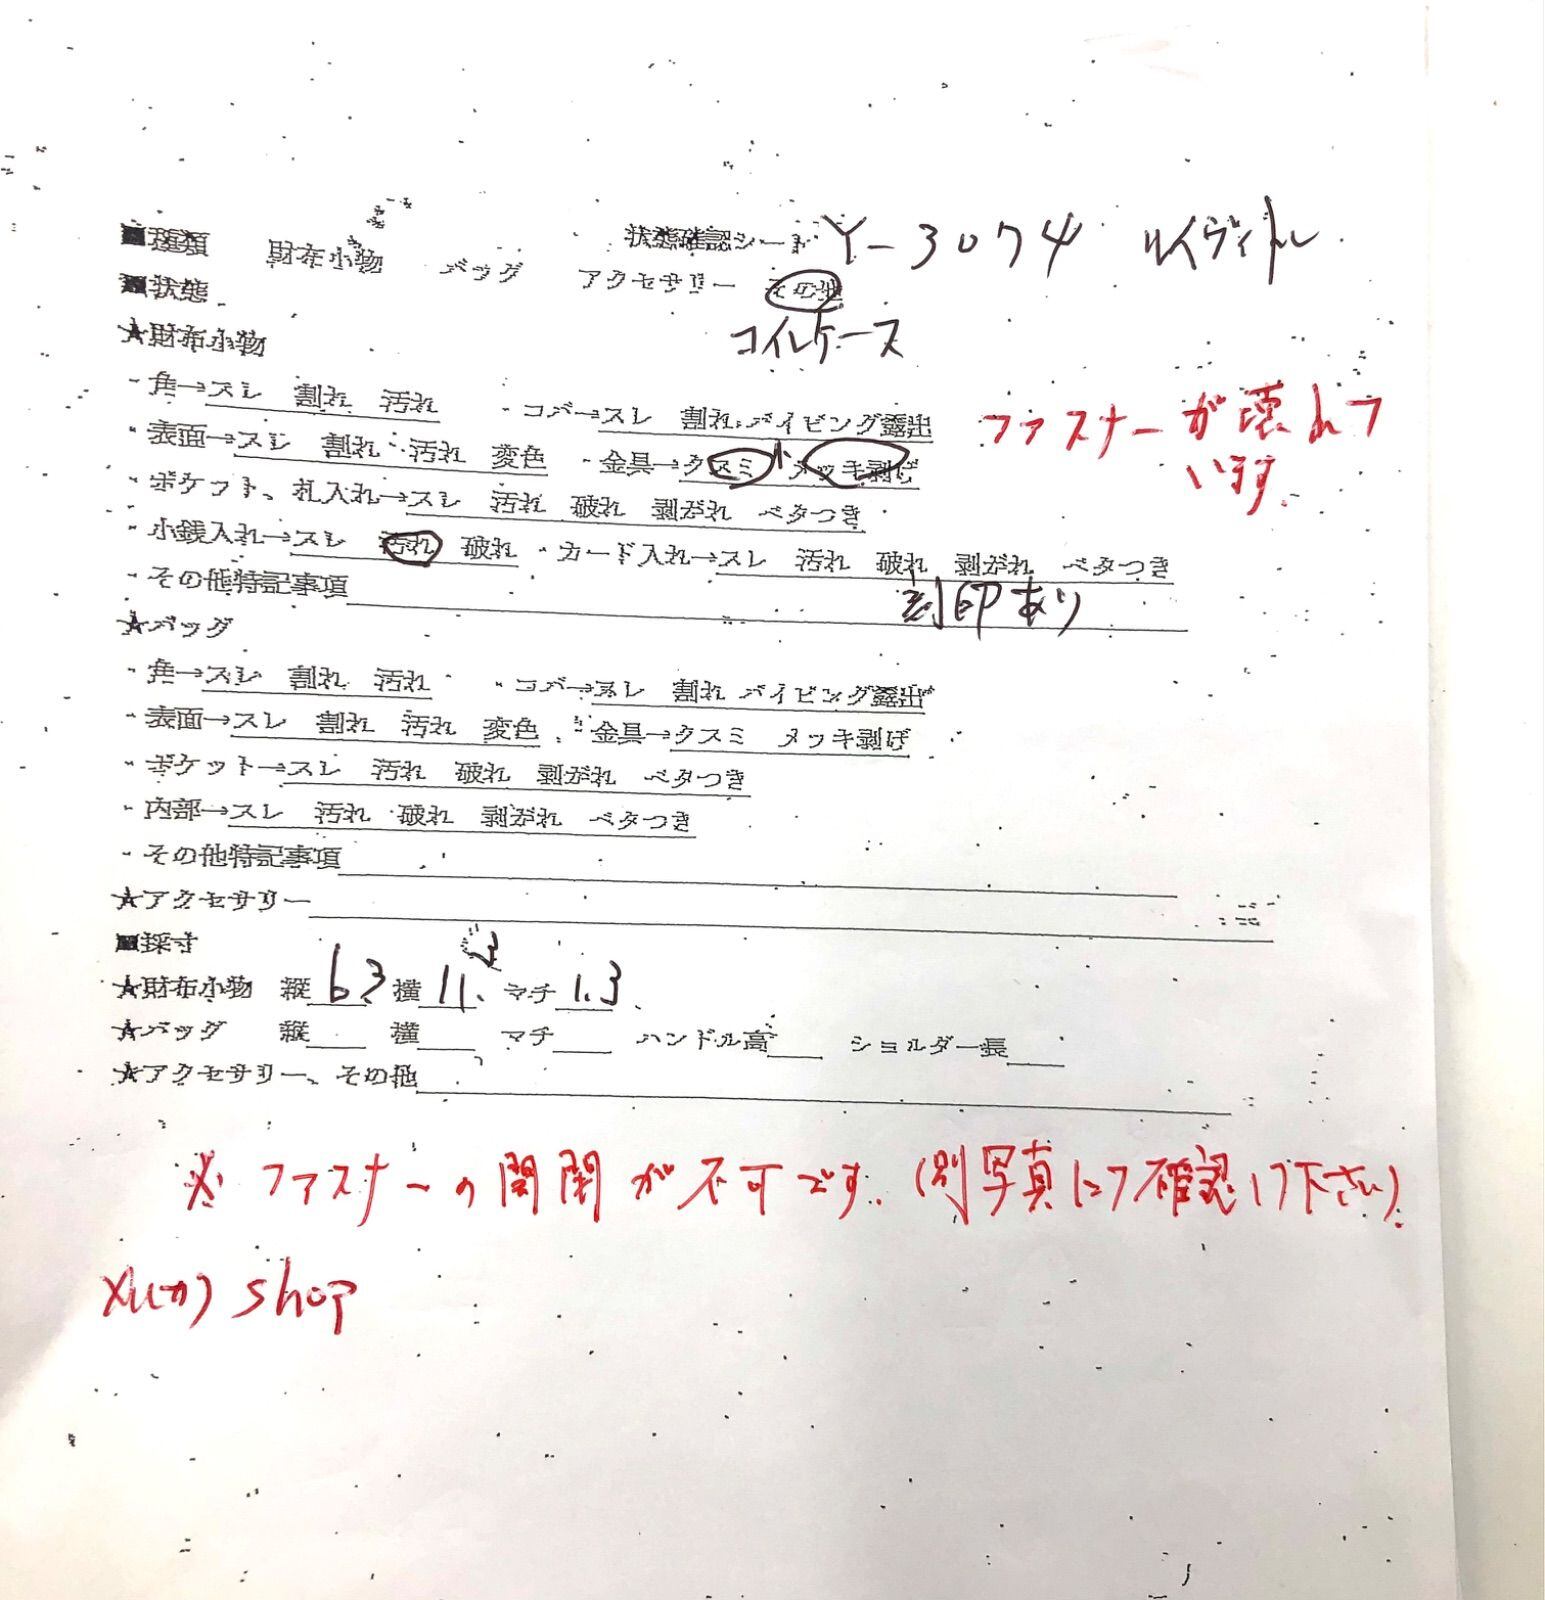 状態確認シート Y-3074 ルイヴィトン
■種類 財布小物 バッグ アクセサリー その他
コインケース
■状態
★財布小物
・角→スレ 割れ 汚れ ・コバ→スレ 割れ パイピング露出
ファスナーが壊れて
います。
・表面→スレ 割れ 汚れ 変色 ・金具→クスミ 小 メッキ剥げ
・ポケット、札入れ→スレ 汚れ 破れ 剥がれ ベタつき
・小銭入れ→スレ 汚れ 破れ ・カード入れ→スレ 汚れ 破れ 剥がれ ベタつき
・その他特記事項 刻印あり
★バッグ
・角→スレ 割れ 汚れ ・コバ→スレ 割れ パイピング露出
・表面→スレ 割れ 汚れ 変色 ・金具→クスミ メッキ剥げ
・ポケット→スレ 汚れ 破れ 剥がれ ベタつき
・内部→スレ 汚れ 破れ 剥がれ ベタつき
・その他特記事項
★アクセサリー
■採寸
★財布小物 縦 6.3 横 11.2 マチ 1.3
★バッグ 縦 横 マチ ハンドル高 ショルダー長
★アクセサリー、その他
※ファスナーの開閉が不可です。(別写真にて確認して下さい)
shop